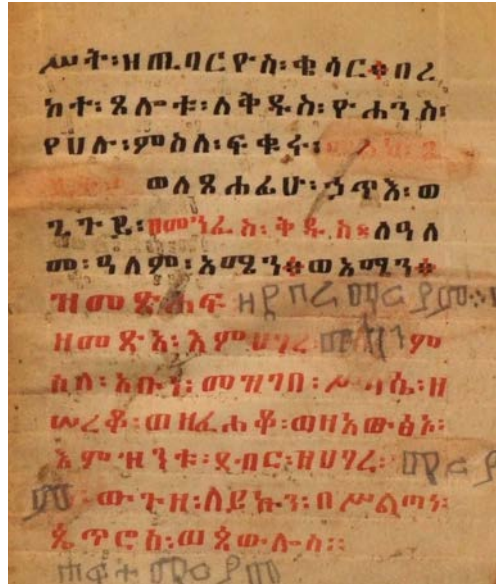 ሥት፡ዘጢባርዮስ፡ቄሳር፨በረ
ከተ፡ጸሎቱ፡ለቅዱስ፡ዮሐንስ፡
የሀሉ፡ምስለ፡ፍቁሩ፡
ወለጸሐፊሁ፡ኃጥእ፡ወ
ጊጉይ፡ዘመንፈስ፡ቅዱስ፨ለዓለ
መ፡ዓለም፡አሜን፨ወአሜን፨
ዝመጽሐፍ
ዘመጽአ፡እምሀገረ ም
ስለ፡አቡነ፡መዝገበ፡ሥላሴ፡ዘ
ሠረቆ፡ወዘፈሐቆ፡ወዘአውፅኦ፡
እምዝንቱ፡ደብር፡ዘሀገረ፡
ውጉዘ፡ለይኩን፡በሥልጣነ፡
ጴጥሮስ፡ወጳውሎስ።